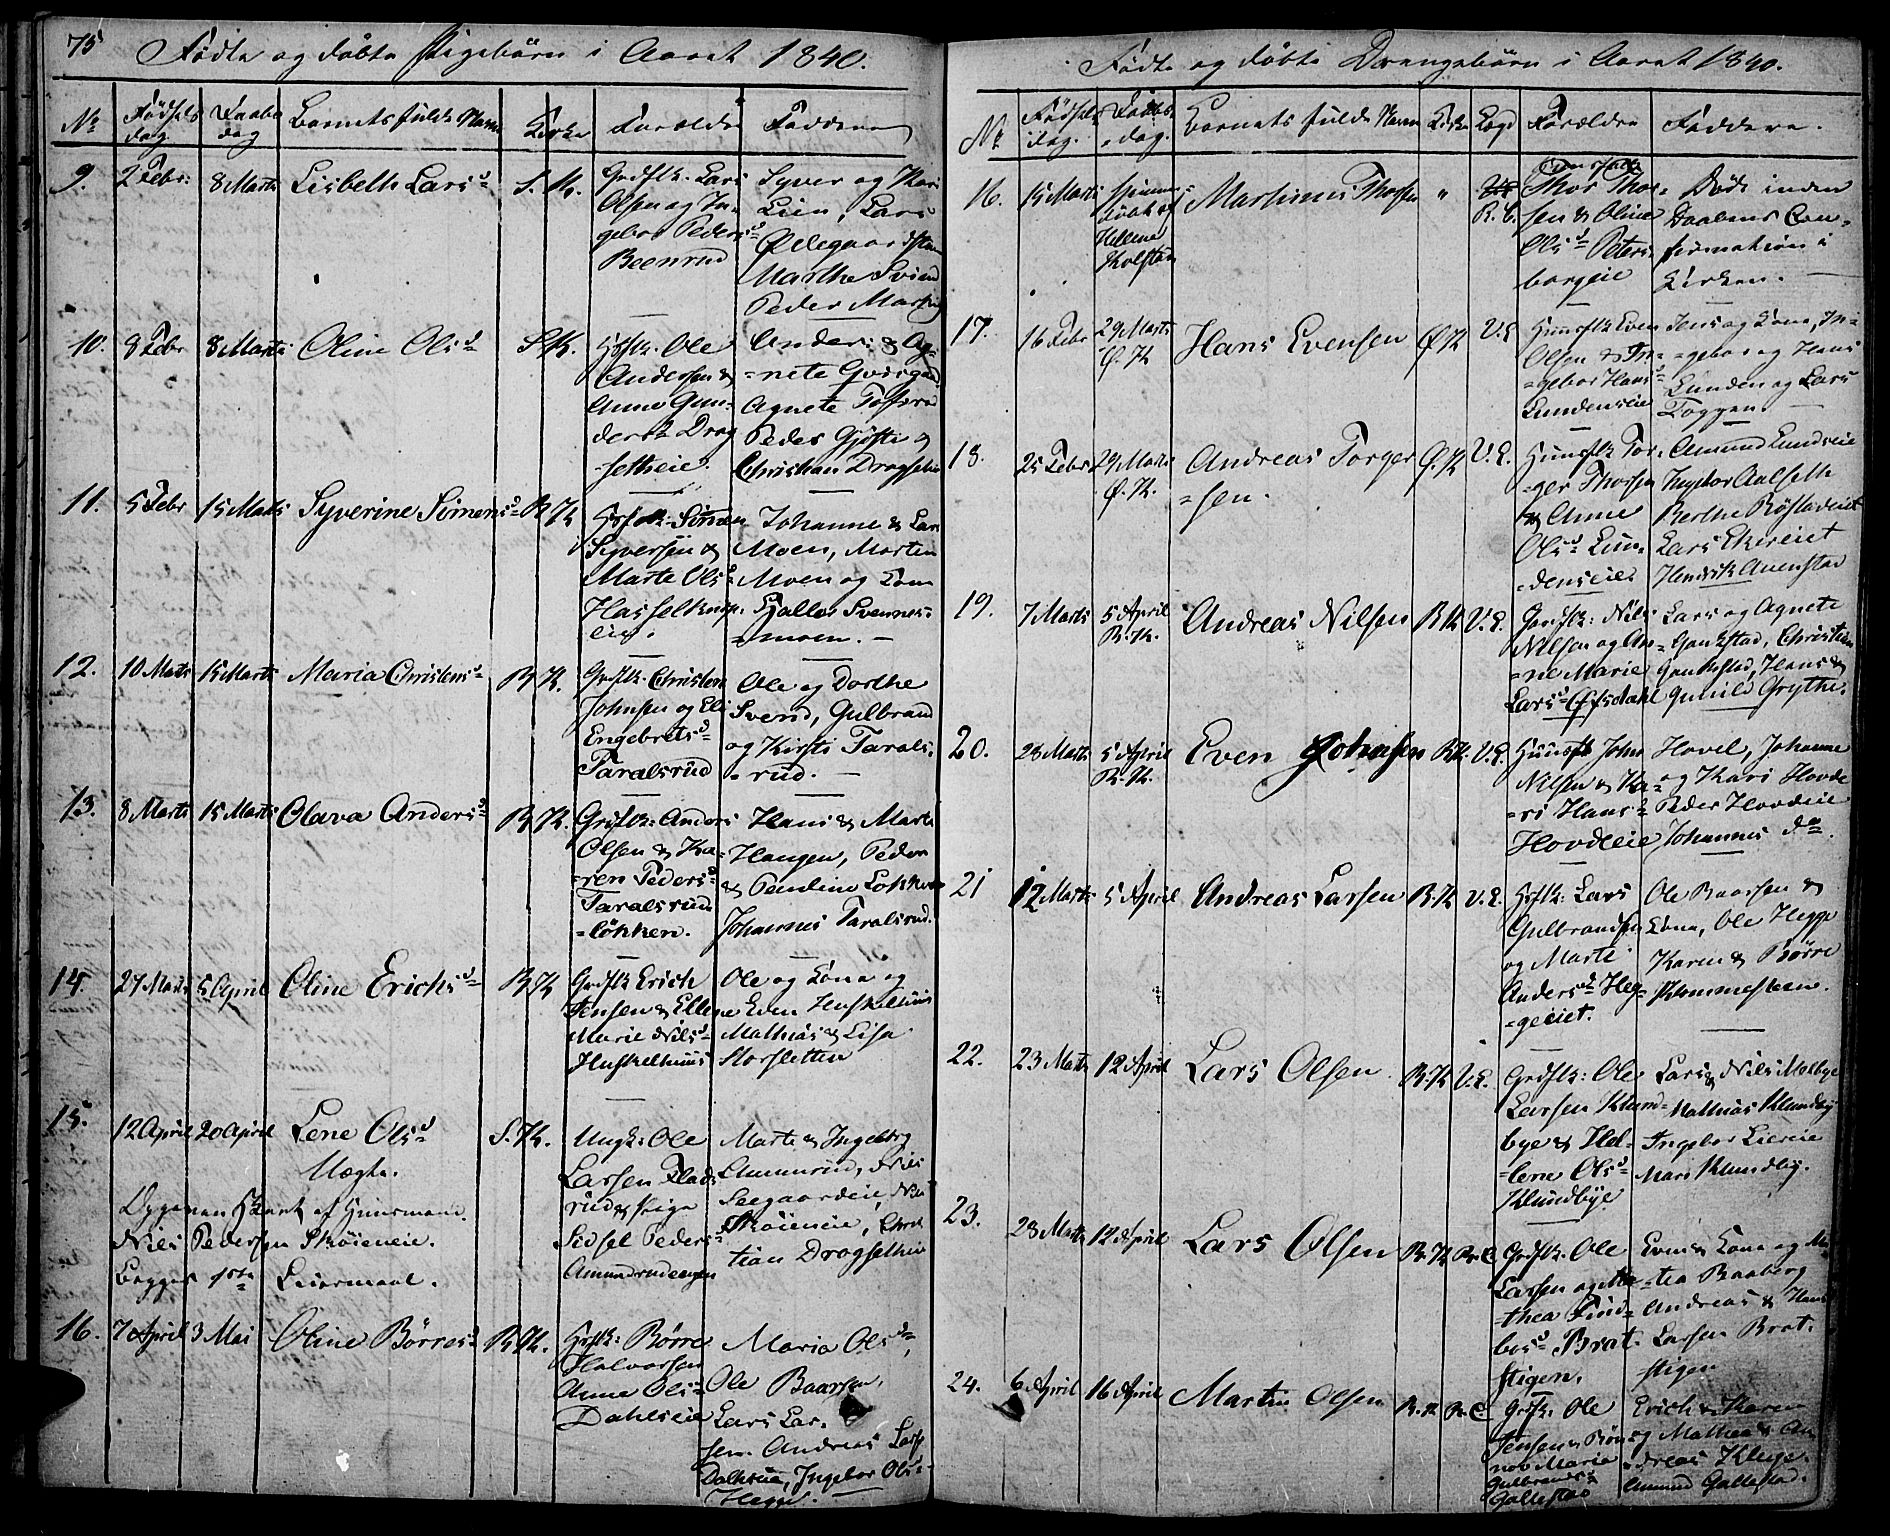 75
Fødte og døbte Pigebörn i Aaret 1840.
No Fødsels dag. Daabs dag Barnets fulde Navn Kirke Forældre Faddere
9. 2 Febr: 8 Marts Lisbeth Larsd S. K.
Grdflk: Lars
Olsen og In-
gebor Pedersd
Beenrud
Syver og Kari
Lien, Lars
Ødegaard
Marthe
Peder
10. 8 Febr 8 Marts Oline Olsd S K.
Ole
Andersen &
Anne Gun-
dersd Drog
setheie.
Anders & Ag-
=nete
Agnete
Peder Gjöste og
Christian Drogseth
11. 5 Febr 15 Marts Syverine Simensd R K
Simen
Syversen &
Marte Olsd
Hasselknip
eie.
Johanne & Lars
Moen, Marten
Moen og Kone
Svennes-
=moen. –
12. 10 Marts 15 Marts Maria Christensd R K.
Grdflk. Christen
Johnsen og Eli
Engebretsd
Taralsrud
Ole og Dorthe
Svend, Gulbrand
og Kirsti Tarals-
=rud. –
13. 8 Marts 15 Marts Olava Andersd R K.
Grdflk: Anders
Olsen & Ka-
=ren Pedersd
Taralsrud
=lökken.
Hans & Marte
Haugen, Peder
& Pauline Lökken
Johannes Taralsrud.
14. 27 Marts 5 April Oline Erichsd R K
Grdflk Erich
Jensen & Ellene
Marie Nilsd
Huskelhuus
Ole og Kone og
Even Huskelhuus
Mathias & Lisa
Storsletten
15. 12 April 20 April Lene Olsd S. K.
Uægte.
Ungk: Ole
Larsen Flads
rud & Pige
Sidsel Pedersd
Amundrudengen
Marte & Ingeborg
Amunrud, Nils
Seegaardeie,
Skøieneie, Chris
tian Drogsetheie
af Huusmand
Niels Pedersen Skøieneie.
Begges 1ste Leiermaal.
16. 7 April 3 Mai Oline Börresd R K.
Börre
Halvorsen
Anne Olsd
Dahlseie
Maria Olsd,
Ole Baarsen,
Lars Lar-
sen. Andreas Lars
Dahlseie, Ingebor Olsd
Hegge.
Födte og döbte Drengebörn i Aaret 1840.
No Fødsels dag. Daabs dag. Barnets fulde Navn Kirke Lægd Forældre Faddere.
16. 15 Marts
Hjemme
döbt af
Helene
Kolstad
Martinus Thorsen " R. E.
Thor Thor-
sen & Oline
Olsd Peters-
borgeie
Döde inden
Daabens Con-
firmation i
Kirken.
17. 16 Febr 29 Marts
Ø. K
Hans Evensen Ø K V. E
Huusflk Even
Olsen & In-
=gebor Hansd
Lundenseie
Jens og Kone, In-
=gebor og Hans
Lunden og Lars
Toggen.
18. 25 Febr 29 Marts
Ø. K.
Andreas Torger
=sen.
Ø. K V. E.
Huusflk Tor-
=ger Thorsen
& Anne
Olsd Lun-
=denseie.
Amund Lundseie
Aalseth
Berthe Röstadeiet
Lars Ekreiet
Hendrik Auenstad
19. 7 Marts 5 April
R. K.
Andreas Nilsen R K V. E.
Grdflk: Nils
Nilsen og An-
=ne Marie
Larsd Öfsdahl
Lars og Agnete
Gaukstad, Christian
Gaukstad, Hans &
Gunild Grythe.
20. 28 Marts 5 April
R. K.
Even Johnsen R K. V. E.
Huusflk John
Nilsen & Ka-
=ri Hansd
Hovdeeie
Hovel, Johanne
og Kari Hovde
Peder Hovdeie
Johannes do.
21 12 Marts 5 April Andreas Larsen R. K V. E.
Lars
Gulbrandsen
og Marte
Andersd Heg-
=geeiet.
Ole Baarsen &
Kone, Ole Hegge
Karen & Börre
Klommesteen.
22. 23 Marts 12 April Lars Olsen R. K V. E.
Grdflk: Ole
Larsen Klund-
bye & Hel-
=lene Olsd
Klundbye
Lars & Nils Molbye
Mathias Klundby
Ingebor Liereie
Mari Klundby.
23. 28 Marts 12 April Lars Olsen R. K R. E
Grdflk. Ole
Larsen og Ma-
thea Find-
bosd Brat-
stigen.
Even & Kone og Ma-
=tea Baaberg
Andreas & Hans
Larsen Brat-
stigen
24. 6 April 16 April Martin Olsen R. K R. E
Grdfk: Ole
Jensen &
Maria
Gulbrandsd
Gallestad
Erich & Karen
og Mathea & An
=dreas Kluge.
Amund Gallestad.